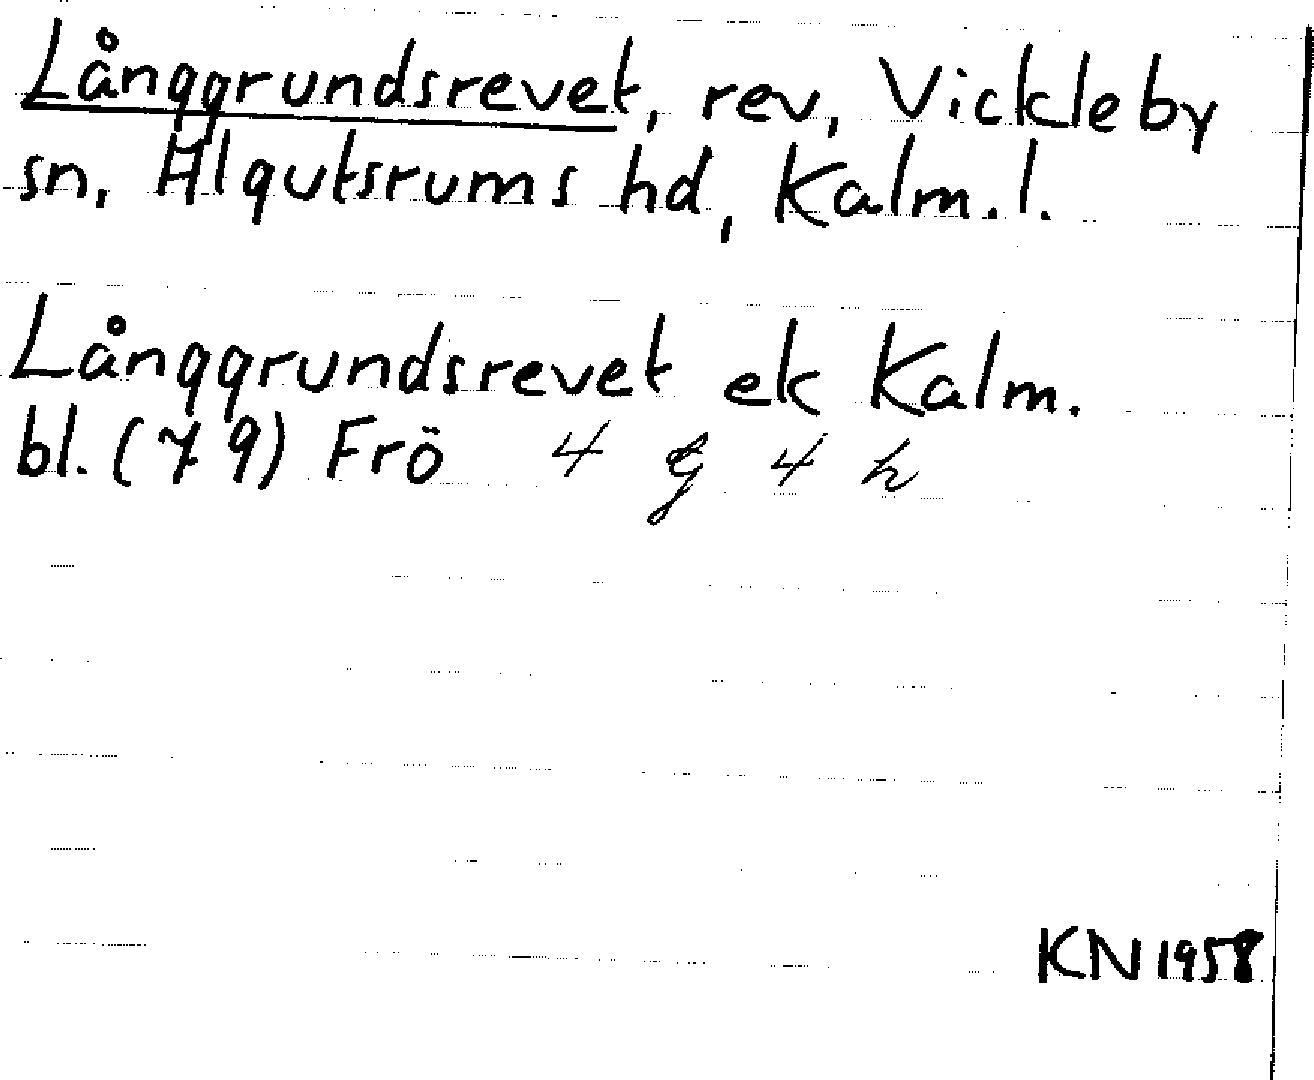 Långgrundsrevet, rev, Vickleby
sn, Algutsrums hd, Kalm. l.
Långgrundsrevet ek Kalm.
bl. (79) Frö 4 g 4 h
KN 1958